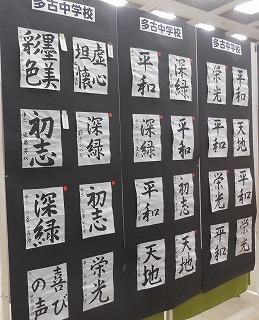 多古中学校
多古中学校
多古中学校
墨美
彩色
虚心
坦懐
初志
深緑
深緑
初志
喜び
の声
栄光
平和
深緑
深緑
平和
平和
初志
天地
天地
栄光
平和
平和
天地
栄光
平和
平和
栄光